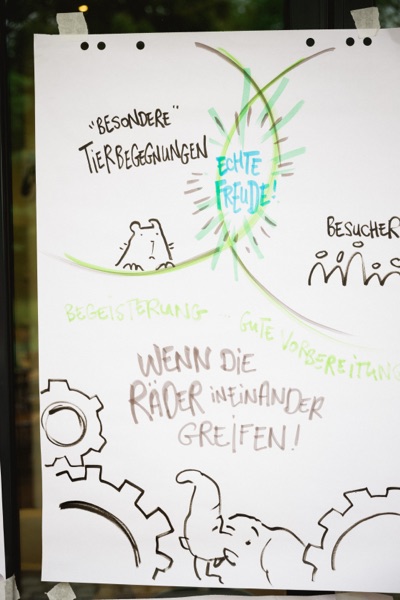 "BESONDERE"
TIERBEGEGNUNGEN
ECHTE
FREUDE!
BESUCHER
BEGEISTERUNG
GUTE VORBEREITUNG
WENN DIE
RÄDER INEINANDER
GREIFEN!